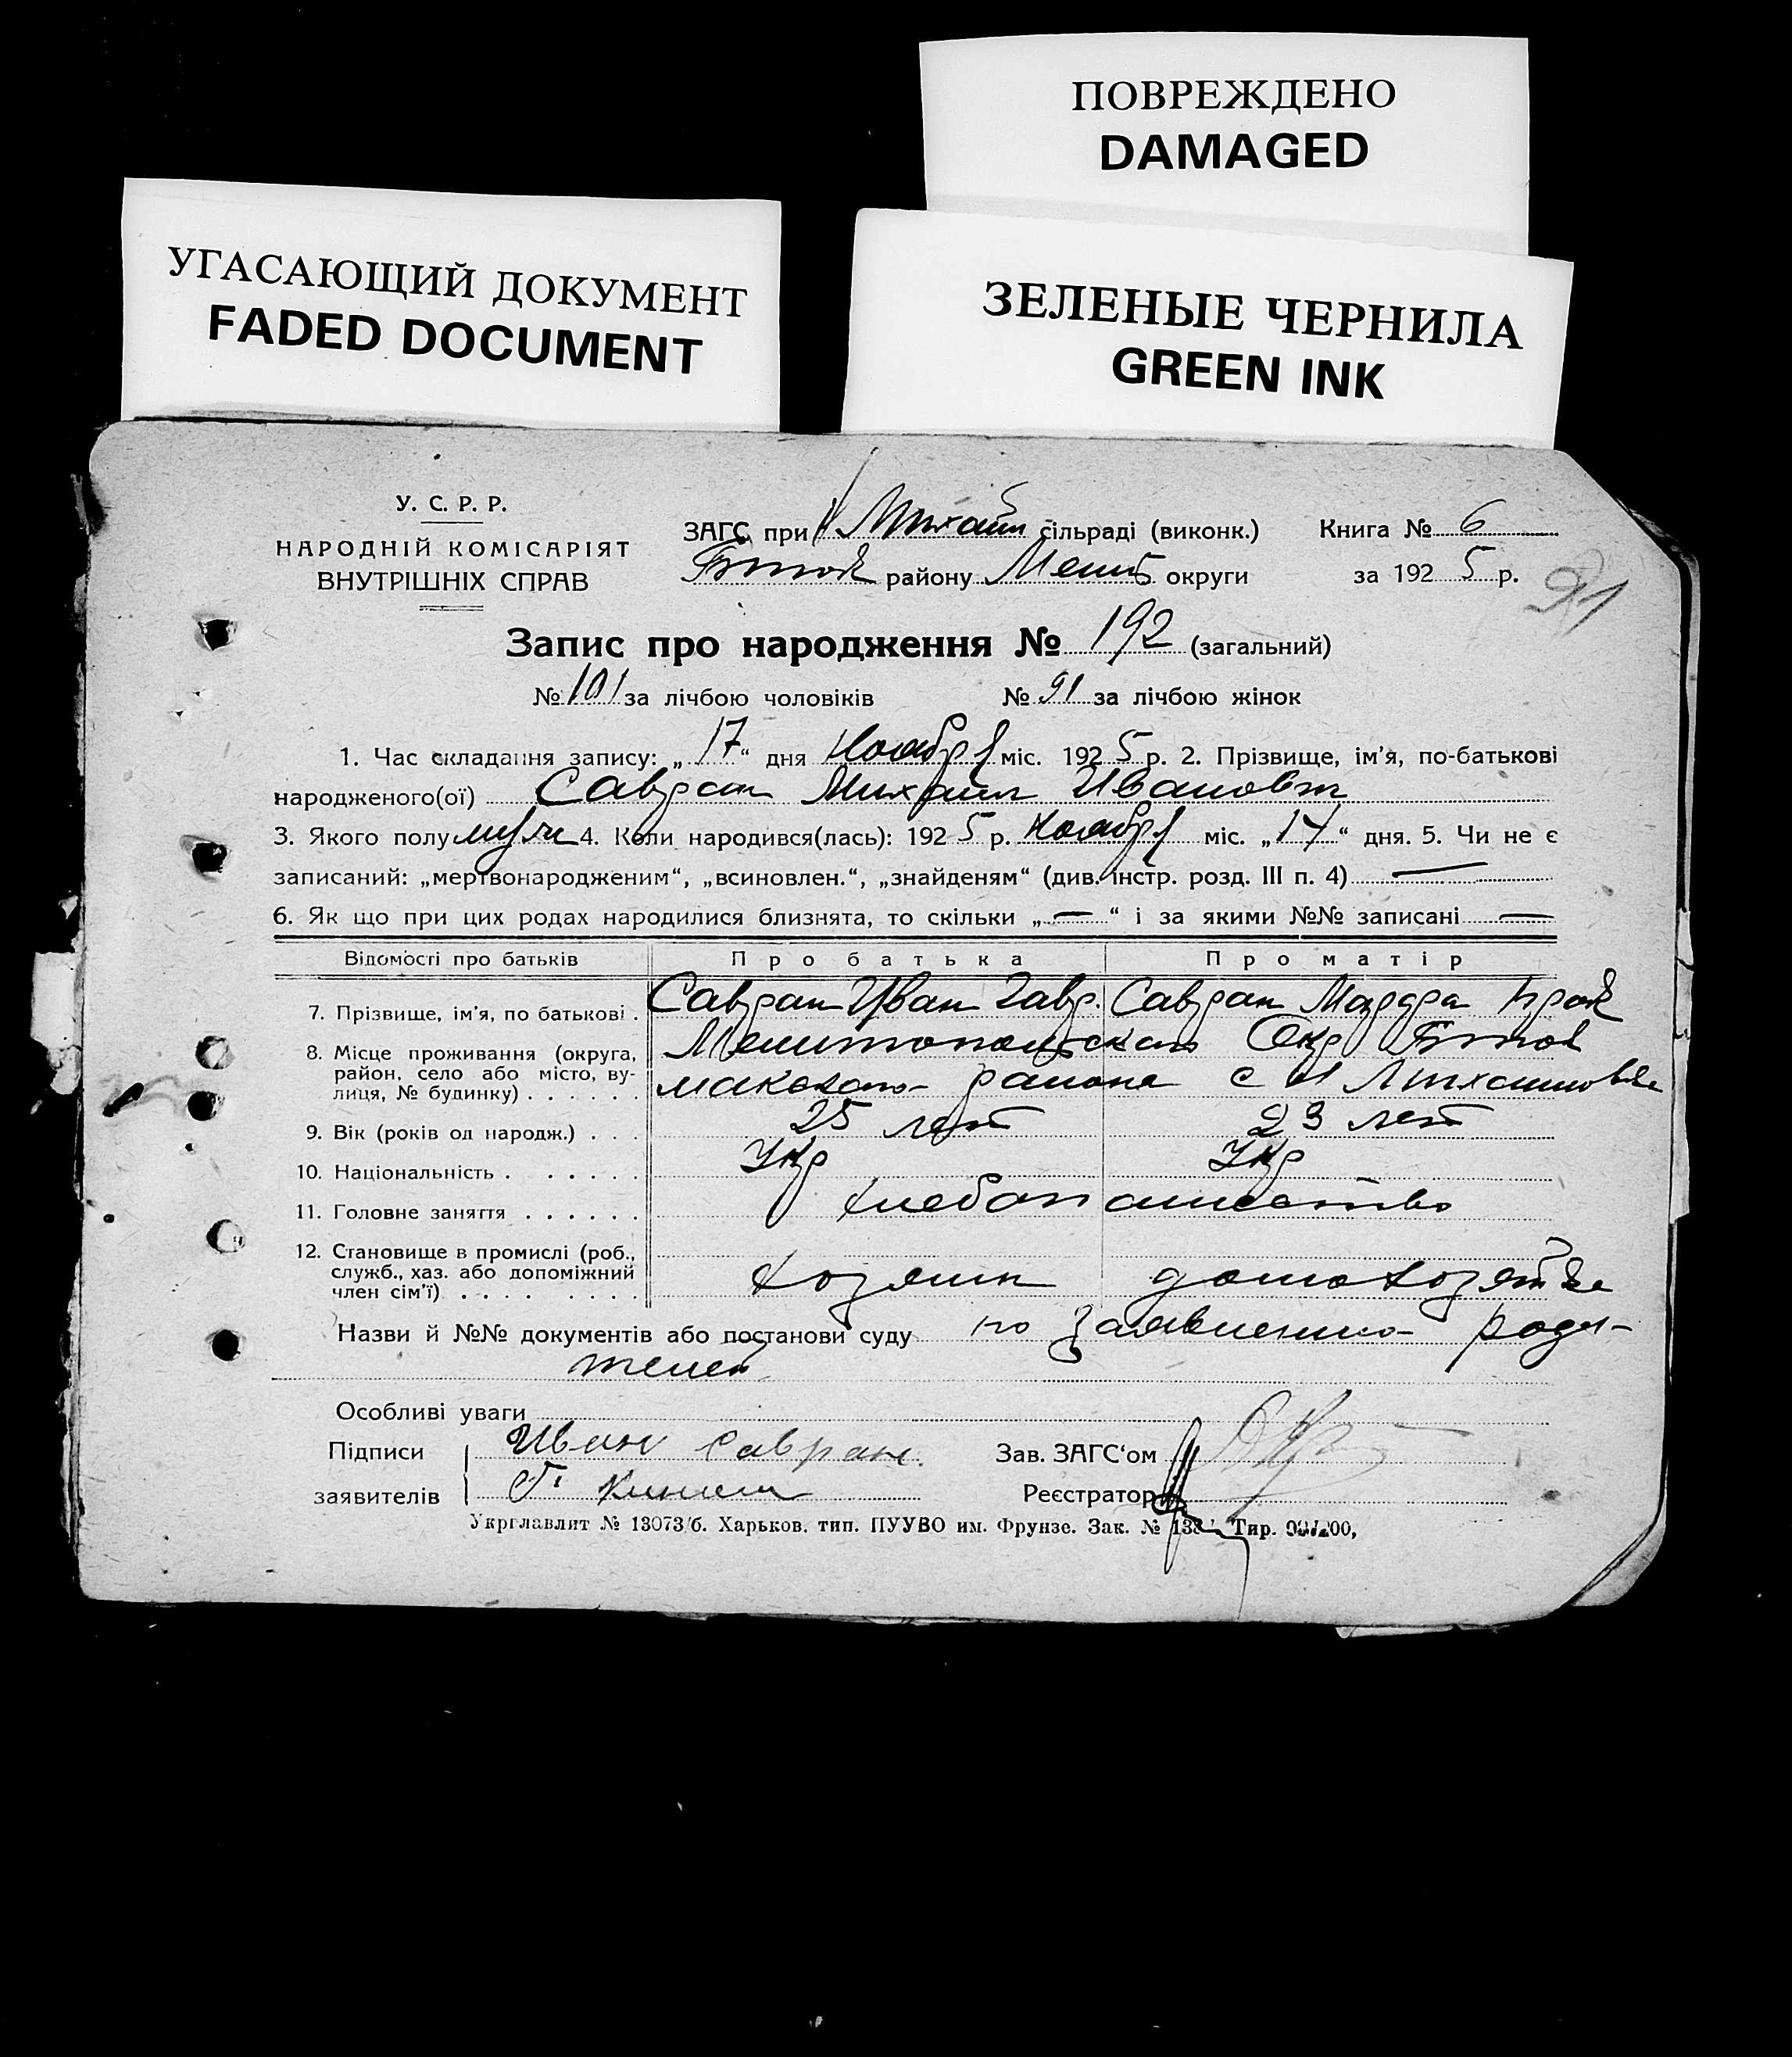 ПОВРЕЖДЕНО
DAMAGED
УГАСАЮЩИЙ ДОКУМЕНТ
FADED DOCUMENT
ЗЕЛЕНЫЕ ЧЕРНИЛА
GREEN INK
У. С. Р. Р.
НАРОДНІЙ КОМІСАРІЯТ
ВНУТРІШНІХ СПРАВ
ЗАГС при Михайл сільраді (виконк.)
району Мелит округи
Книга № 6
за 1925 р.
91
Запис про народження № 192 (загальний)
№ 101 за лічбою чоловіків № 91 за лічбою жінок
1. Час складання запису: „17“ дня Ноября міс. 1925 р. 2. Прізвище, ім'я, по-батькові
народженого(ої) Савран Михаил Иванович
3. Якого полу муж 4. Коли народився(лась): 1925 р. Ноября міс. „14“ дня. 5. Чи не є
записаний: „мертвонародженим“, „всиновлен.“, „знайденям“ (див. інстр. розд. III п. 4) —
6. Як що при цих родах народилися близнята, то скільки „—“ і за якими №№ записані —
Відомості про батьків Про батька Про матір
7. Прізвище, ім'я, по батькові . Савран Иван Гавр. Савран
8. Місце проживання (округа, район, село або місто, вулиця, № будинку) . . . . . . Мелитопольская Окр
района с Н Михайловка
9. Вік (років од народж.) . . . 25 лет 23 лет
10. Національність . . . . . . Укр Укр
11. Головне заняття . . . . . . хлебопашество
12. Становище в промислі (роб., служб., хаз. або допоміжний член сім'ї) . . . . . . . . хозяин домохозяйка
Назви й №№ документів або постанови суду по заявлению роди-
телей
Особливі уваги
Підписи Иван Савран. Зав. ЗАГС'ом
заявителів Реєстратор
Укрглавлит № 13073/б. Харьков. тип. ПУУВО им. Фрунзе. Зак. № Тир.